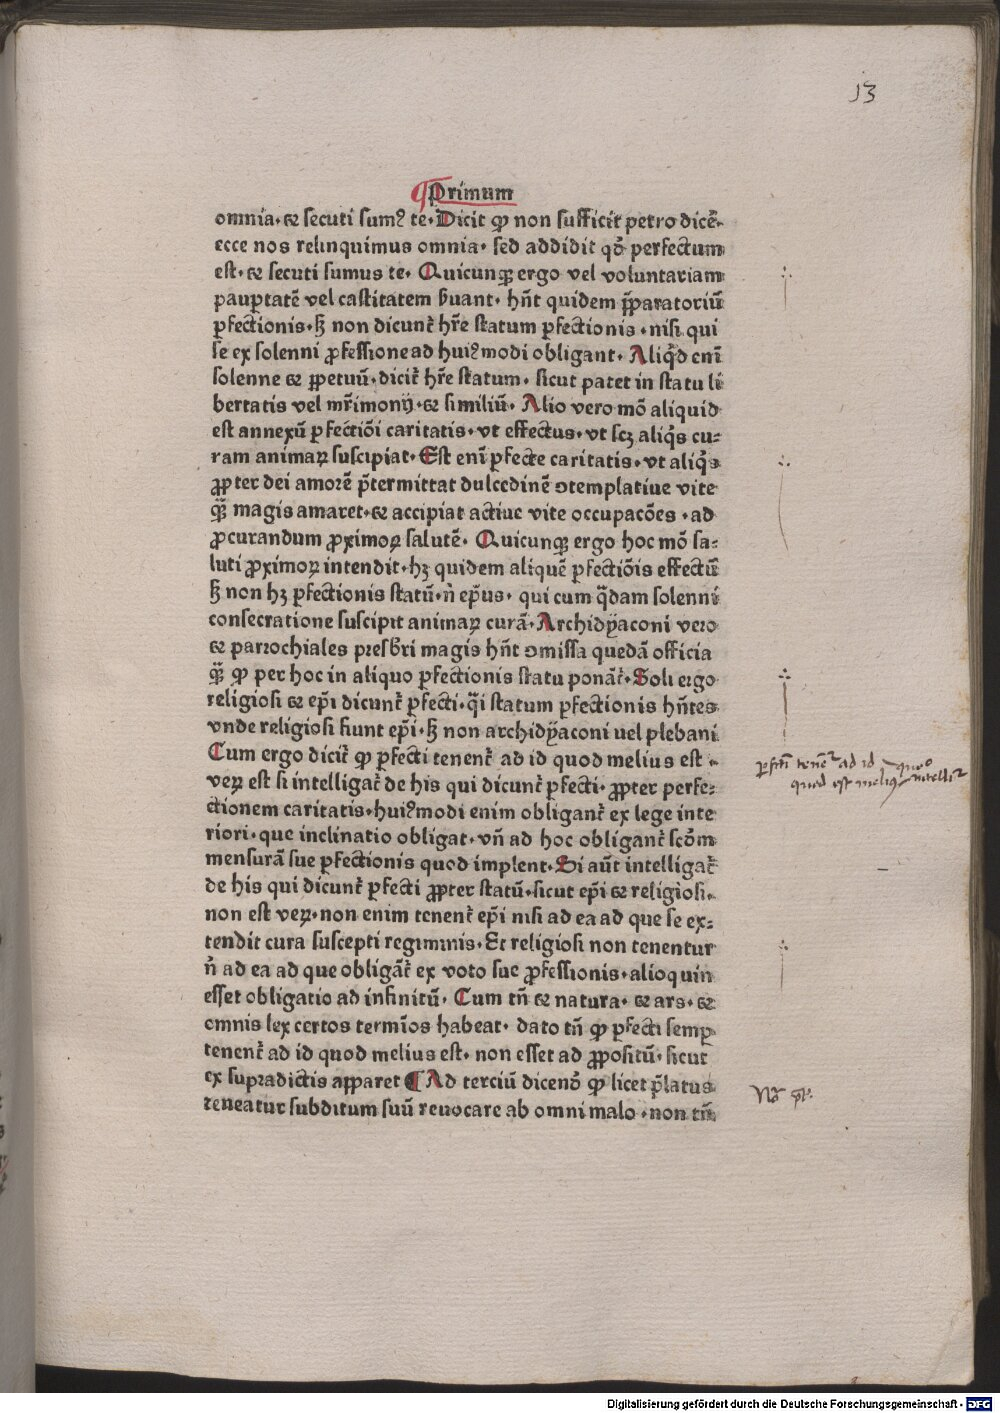 13
Primum
omnia· ⁊ secuti sumꝰ te· Dicit ꝙ non sufficit petro dicẽ·
ecce nos relinquimus omnia· sed addidit qđ perfectum
est· ⁊ secuti sumus te· Quicunqꝫ ergo vel voluntariam
pauꝑtatẽ vel castitatem ẜuant· hñt quidem p̄paratoriũ
ꝑfectionis· ẜꝫ non dicunt᷑ hr̃e statum ꝑfectionis· nisi qui
se ex solenni ꝓfessione ad huiꝰmodi obligant· Aliqͥd enĩ
solenne ⁊ ꝑpetuũ· dicit᷑ hr̃e statum· sicut patet in statu li
bertatis vel mr̃imonij· ⁊ similiũ· Alio vero mõ aliquid
est annexũ ꝑfectiõi caritatis· vt effectus· vt scꝫ aliqͥs cu⸗
ram animaꝝ suscipiat· Est enĩ ꝑfecte caritatis· vt aliqͥs
ꝓpter dei amorẽ p̃termittat dulcedinẽ ꝯtemplatiue vite
quã magis amaret· ⁊ accipiat actiue vite occupacões· ad
ꝓcurandum ꝓximoꝝ salutẽ· Quicunqꝫ ergo hoc mõ sa⸗
luti ꝓximoꝝ intendit· hꝫ quidem aliquẽ ꝑfectiõis effectũ
ẜꝫ non hꝫ ꝑfectionis statũ· nͥ ep̃us· qui cum qͣdam solenni
consecratione suscipit animaꝝ curã· Archidyaconi vero
⁊ parrochiales presbr̃i magis hñt ꝯmissa quedã officia
quã ꝙ per hoc in aliquo ꝑfectionis statu ponãt᷑· Soli ergo
religiosi ⁊ ep̃i dicunt᷑ ꝑfecti· qͣi statum ꝑfectionis hñtes
vnde religiosi fiunt ep̃i· ẜꝫ non archidyaconi uel plebani
Cum ergo dicit᷑ ꝙ ꝑfecti tenent᷑ ad id quod melius est·
veꝝ est si intelligat᷑ de his qui dicunt᷑ ꝑfecti· ꝓpter perfe⸗
ctionem caritatis· huiꝰmodi enim obligant᷑ ex lege inte
riori· que inclinatio obligat· vñ ad hoc obligant᷑ scd̃m
mensurã sue ꝑfectionis quod implent· Si aũt intelligat᷑
de his qui dicunt᷑ ꝑfecti ꝓpter statũ· sicut ep̃i ⁊ religiosi·
non est veꝝ· non enim tenent᷑ ep̃i nisi ad ea ad que se ex⸗
tendit cura suscepti regiminis· Et religiosi non tenentur
nͥ ad ea ad que obligãt᷑ ex voto sue ꝓfessionis· alioquin
esset obligatio ad infinitũ· Cum tñ ⁊ natura· ⁊ ars· ⁊
omnis lex certos termĩos habeat· dato tñ ꝙ ꝑfecti semꝑ
tenent᷑ ad id quod melius est· non esset ad ꝓpositũ· sicut
ex supradictis apparet ¶ Ad terciũ dicenđ ꝙ licet p̃latus
teneatur subditum suũ reuocare ab omni malo· non tñ
ad id
quod est melius
Digitalisierung gefördert durch die Deutsche Forschungsgemeinschaft - DFG